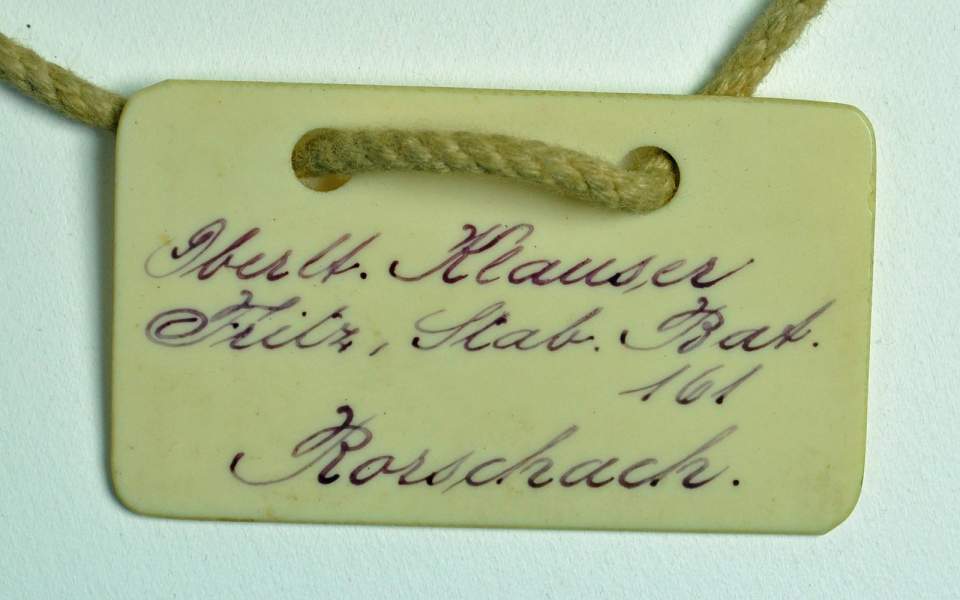 Oberlt. Klauser
Fritz, Stab. Bat.
161
Rorschach.